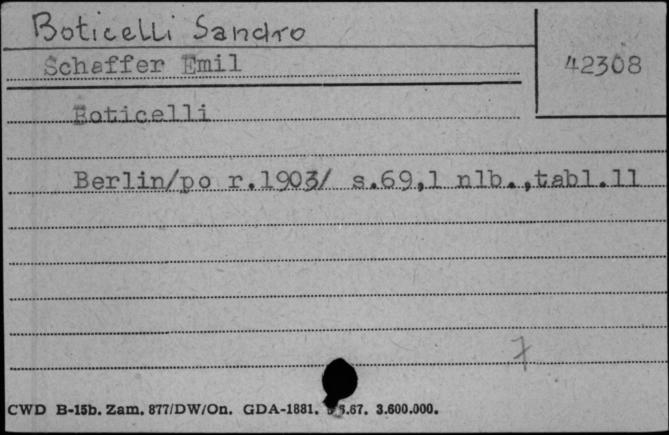 Boticelli Sandro
Schaffer Emil
42308
Boticelli
Berlin/po r.1903/ s.69,1 nlb.,tabl.11
7
CWD B-15b. Zam. 877/DW/On. GDA-1881. 5.67. 3.600.000.